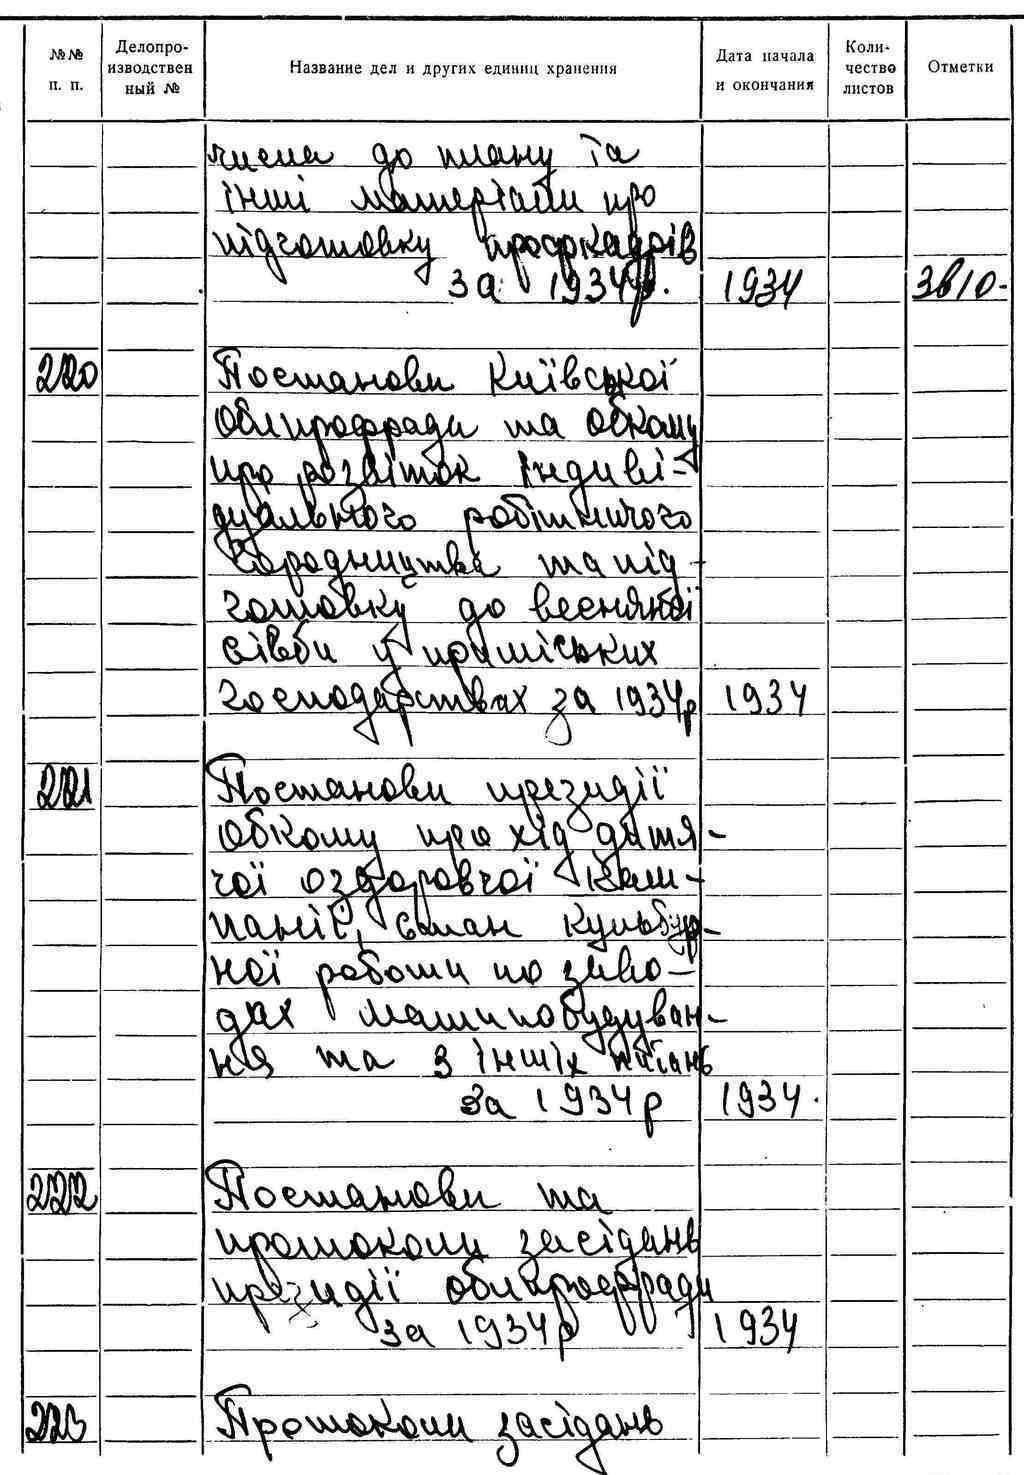 №№ п. п. Делопроизводственный № Название дел и других единиц хранения Дата начала и окончания Количество листов Отметки
числа до плану та
інші матеріали про
підготовку профкадрів
за 1934р. 1934
220 Постанови Київської
облпрофради та обкому
про розвіток індиві-
дуального робітничого
городництва та під-
готовку до весняної
сівби у приміських
господарствах за 1934р 1934
221 Постанови президії
обкому про хід дитя-
чої оздоровчої кам-
панії, стан культур-
ної роботи по заво-
дах машинобудуван-
ня та з інших питань
за 1934р 1934.
222 Постанови та
протоколи засідань
президії облпрофради
за 1934р 1934
223 Протоколи засідань